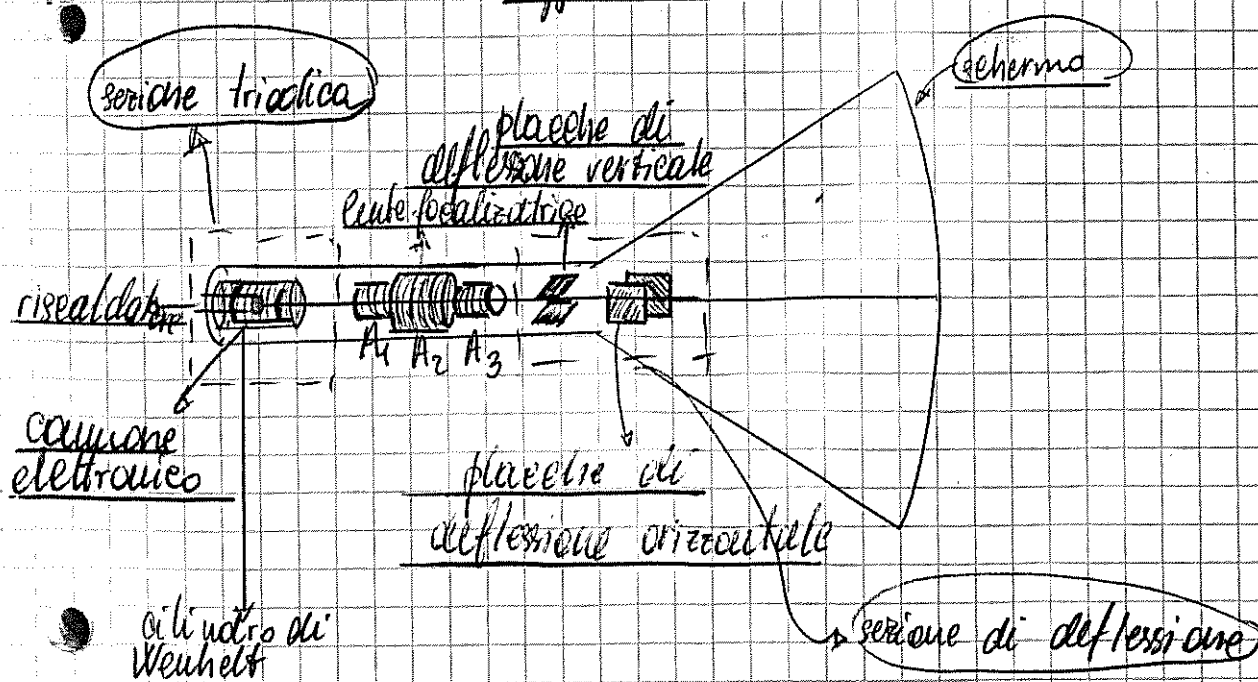 sezione triodica
schermo
placche di
deflessione verticale
lente focalizatrice
riscaldatore
A1 A2 A3
cannone
elettronico
placche di
deflessione orizzontale
cilindro di
Wenhelt
sezione di deflessione